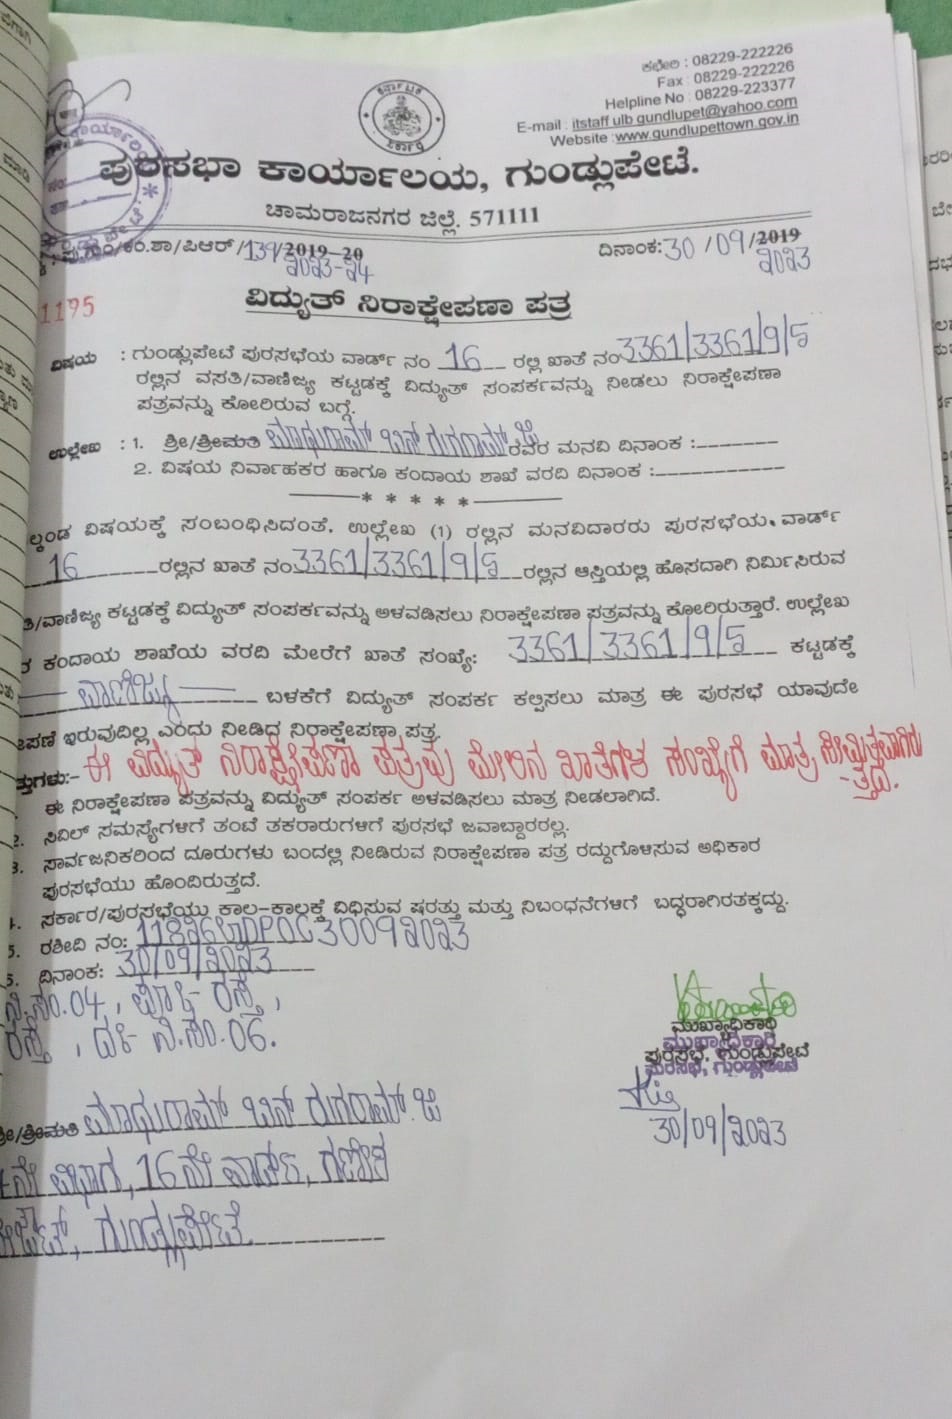 ಕಛೇರಿ : 08229-222226
Fax : 08229-222226
Helpline No : 08229-223377
E-mail : itstaff ulb gundlupet@yahoo.com
Website :www.gundlupettown.gov.in
ಪುರಸಭಾ ಕಾರ್ಯಾಲಯ, ಗುಂಡ್ಲುಪೇಟೆ.
ಚಾಮರಾಜನಗರ ಜಿಲ್ಲೆ. 571111
ಪು.ಗುಂ/ಕಂ.ಶಾ/ಪಿಆರ್/139/2019-20 ದಿನಾಂಕ:30/09/2019
೨೦೨೩-೨4 ೨೦೨೩
1195 ವಿದ್ಯುತ್ ನಿರಾಕ್ಷೇಪಣಾ ಪತ್ರ
ವಿಷಯ : ಗುಂಡ್ಲುಪೇಟೆ ಪುರಸಭೆಯ ವಾರ್ಡ್ ನಂ 16 ರಲ್ಲಿ ಖಾತೆ ನಂ 3361/3361/9/5
ರಲ್ಲಿನ ವಸತಿ/ವಾಣಿಜ್ಯ ಕಟ್ಟಡಕ್ಕೆ ವಿದ್ಯುತ್ ಸಂಪರ್ಕವನ್ನು ನೀಡಲು ನಿರಾಕ್ಷೇಪಣಾ
ಪತ್ರವನ್ನು ಕೋರಿರುವ ಬಗ್ಗೆ.
ಉಲ್ಲೇಖ : 1. ಶ್ರೀ/ಶ್ರೀಮತಿ ಮಾಧುರಾಮ್ ಬಿನ್ ರವರ ಮನವಿ ದಿನಾಂಕ :-------
2. ವಿಷಯ ನಿರ್ವಾಹಕರ ಹಾಗೂ ಕಂದಾಯ ಶಾಖೆ ವರದಿ ದಿನಾಂಕ :-----------
-------* * * * *-------
ಲ್ಕಂಡ ವಿಷಯಕ್ಕೆ ಸಂಬಂಧಿಸಿದಂತೆ, ಉಲ್ಲೇಖ (1) ರಲ್ಲಿನ ಮನವಿದಾರರು ಪುರಸಭೆಯ ವಾರ್ಡ್
16 ರಲ್ಲಿನ ಖಾತೆ ನಂ 3361/3361/9/5 ರಲ್ಲಿನ ಆಸ್ತಿಯಲ್ಲಿ ಹೊಸದಾಗಿ ನಿರ್ಮಿಸಿರುವ
ತಿ/ವಾಣಿಜ್ಯ ಕಟ್ಟಡಕ್ಕೆ ವಿದ್ಯುತ್ ಸಂಪರ್ಕವನ್ನು ಅಳವಡಿಸಲು ನಿರಾಕ್ಷೇಪಣಾ ಪತ್ರವನ್ನು ಕೋರಿರುತ್ತಾರೆ. ಉಲ್ಲೇಖ
ಕಂದಾಯ ಶಾಖೆಯ ವರದಿ ಮೇರೆಗೆ ಖಾತೆ ಸಂಖ್ಯೆ: 3361/3361/9/5 ಕಟ್ಟಡಕ್ಕೆ
ವಾಣಿಜ್ಯ ಬಳಕೆಗೆ ವಿದ್ಯುತ್ ಸಂಪರ್ಕ ಕಲ್ಪಿಸಲು ಮಾತ್ರ ಈ ಪುರಸಭೆ ಯಾವುದೇ
ೇಪಣೆ ಇರುವುದಿಲ್ಲ ಎಂದು ನೀಡಿದ ನಿರಾಕ್ಷೇಪಣಾ ಪತ್ರ.
ತ್ತುಗಳು:- ಈ ವಿದ್ಯುತ್ ನಿರಾಕ್ಷೇಪಣಾ ಪತ್ರವು ಮೇಲಿನ ಖಾತೆಗಳ ಸಂಖ್ಯೆಗೆ ಮಾತ್ರ ಸೀಮಿತವಾಗಿರು
-ತ್ತದೆ.
ಈ ನಿರಾಕ್ಷೇಪಣಾ ಪತ್ರವನ್ನು ವಿದ್ಯುತ್ ಸಂಪರ್ಕ ಅಳವಡಿಸಲು ಮಾತ್ರ ನೀಡಲಾಗಿದೆ.
2. ಸಿವಿಲ್ ಸಮಸ್ಯೆಗಳಿಗೆ ತಂಟೆ ತಕರಾರುಗಳಿಗೆ ಪುರಸಭೆ ಜವಾಬ್ದಾರರಲ್ಲ.
3. ಸಾರ್ವಜನಿಕರಿಂದ ದೂರುಗಳು ಬಂದಲ್ಲಿ ನೀಡಿರುವ ನಿರಾಕ್ಷೇಪಣಾ ಪತ್ರ ರದ್ದುಗೊಳಿಸುವ ಅಧಿಕಾರ
ಪುರಸಭೆಯು ಹೊಂದಿರುತ್ತದೆ.
4. ಸರ್ಕಾರ/ಪುರಸಭೆಯು ಕಾಲ-ಕಾಲಕ್ಕೆ ವಿಧಿಸುವ ಷರತ್ತು ಮತ್ತು ನಿಬಂಧನೆಗಳಿಗೆ ಬದ್ಧರಾಗಿರತಕ್ಕದ್ದು.
5. ರಶೀದಿ ನಂ:
6. ದಿನಾಂಕ: 30/09/೨೦೨೩
ನಿ.ಸಂ.04, ಪೂ:- ರಸ್ತೆ,
ರಸ್ತೆ, ದ:- ನಿ.ಸಂ.06.
ಮುಖ್ಯಾಧಿಕಾರಿ
ಮುಖ್ಯಾಧಿಕಾರಿ
ಪುರಸಭೆ, ಗುಂಡ್ಲುಪೇಟೆ
ಪುರಸಭೆ, ಗುಂಡ್ಲುಪೇಟೆ
30/09/೨೦೨೩
ಶ್ರೀ/ಶ್ರೀಮತಿ ಮಾಧುರಾಮ್ ಬಿನ್
ನೇ ವಿಭಾಗ, 16ನೇ ವಾರ್ಡ್, ಗಣೇಶ
ಗುಂಡ್ಲುಪೇಟೆ